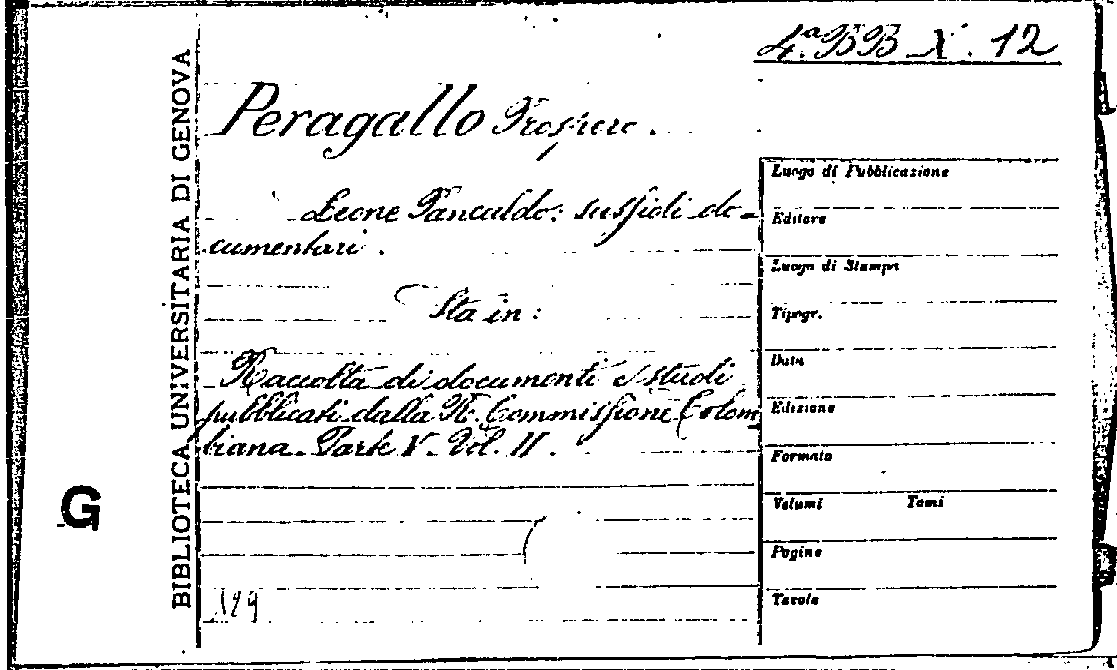 4ª BB X. 12
BIBLIOTECA UNIVERSITARIA DI GENOVA
Peragallo Prospero.
Leone Pancaldo: sussidi do-
cumentari.
Sta in:
Raccolta di documenti e studi
pubblicati dalla R. Commissione Colom-
biana. Parte V. Vol. II.
G
129
Luogo di Pubblicazione
Editore
Luogo di Stampa
Tipogr.
Data
Edizione
Formato
Volumi Tomi
Pagine
Tavole